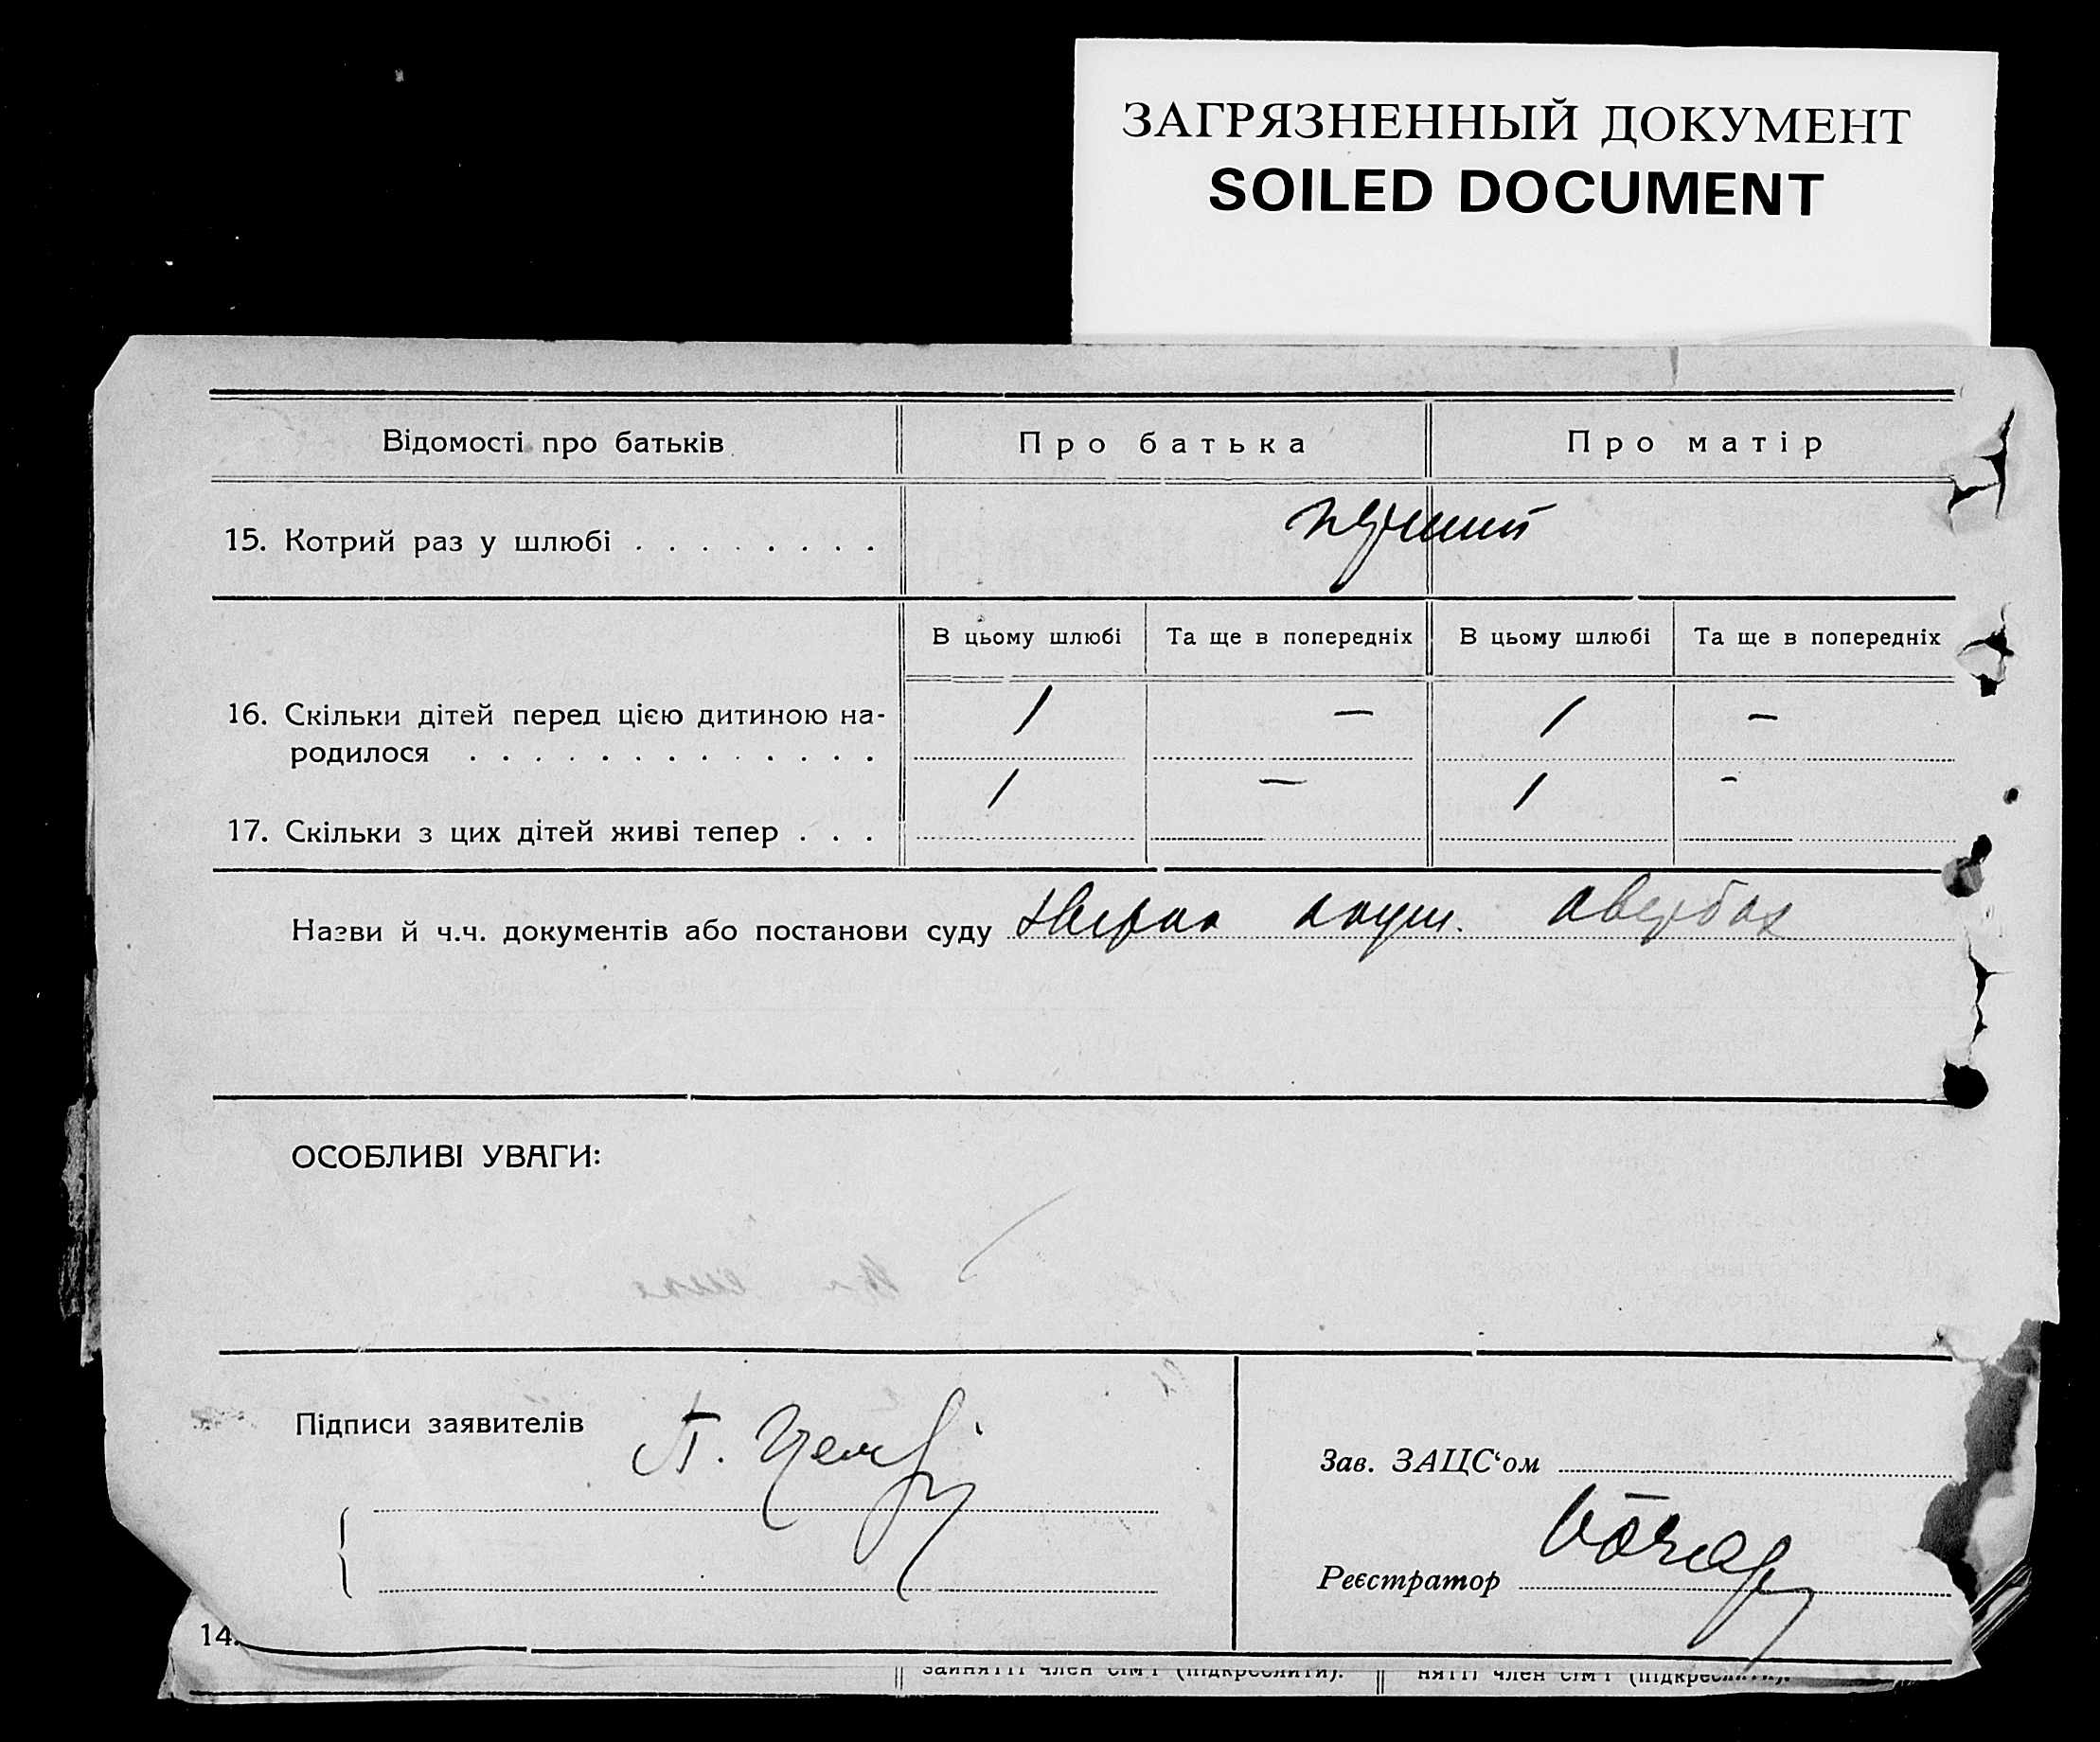 ЗАГРЯЗНЕННЫЙ ДОКУМЕНТ
SOILED DOCUMENT
Відомості про батьків
Про батька
Про матір
15. Котрий раз у шлюбі . . . . . . . .
перший
В цьому шлюбі
Та ще в попередніх
В цьому шлюбі
Та ще в попередніх
16. Скільки дітей перед цією дитиною на-
родилося . . . . . . . . . . . . .
1 — 1 —
17. Скільки з цих дітей живі тепер . . .
1 — 1 -
Назви й ч.ч. документів або постанови суду акуш. Авербах
ОСОБЛИВІ УВАГИ:
Підписи заявителів
Зав. ЗАЦС‘ом
Реєстратор
14.
зайнятті член сім'ї (підкреслити).
нятті член сім'ї (підкреслити).